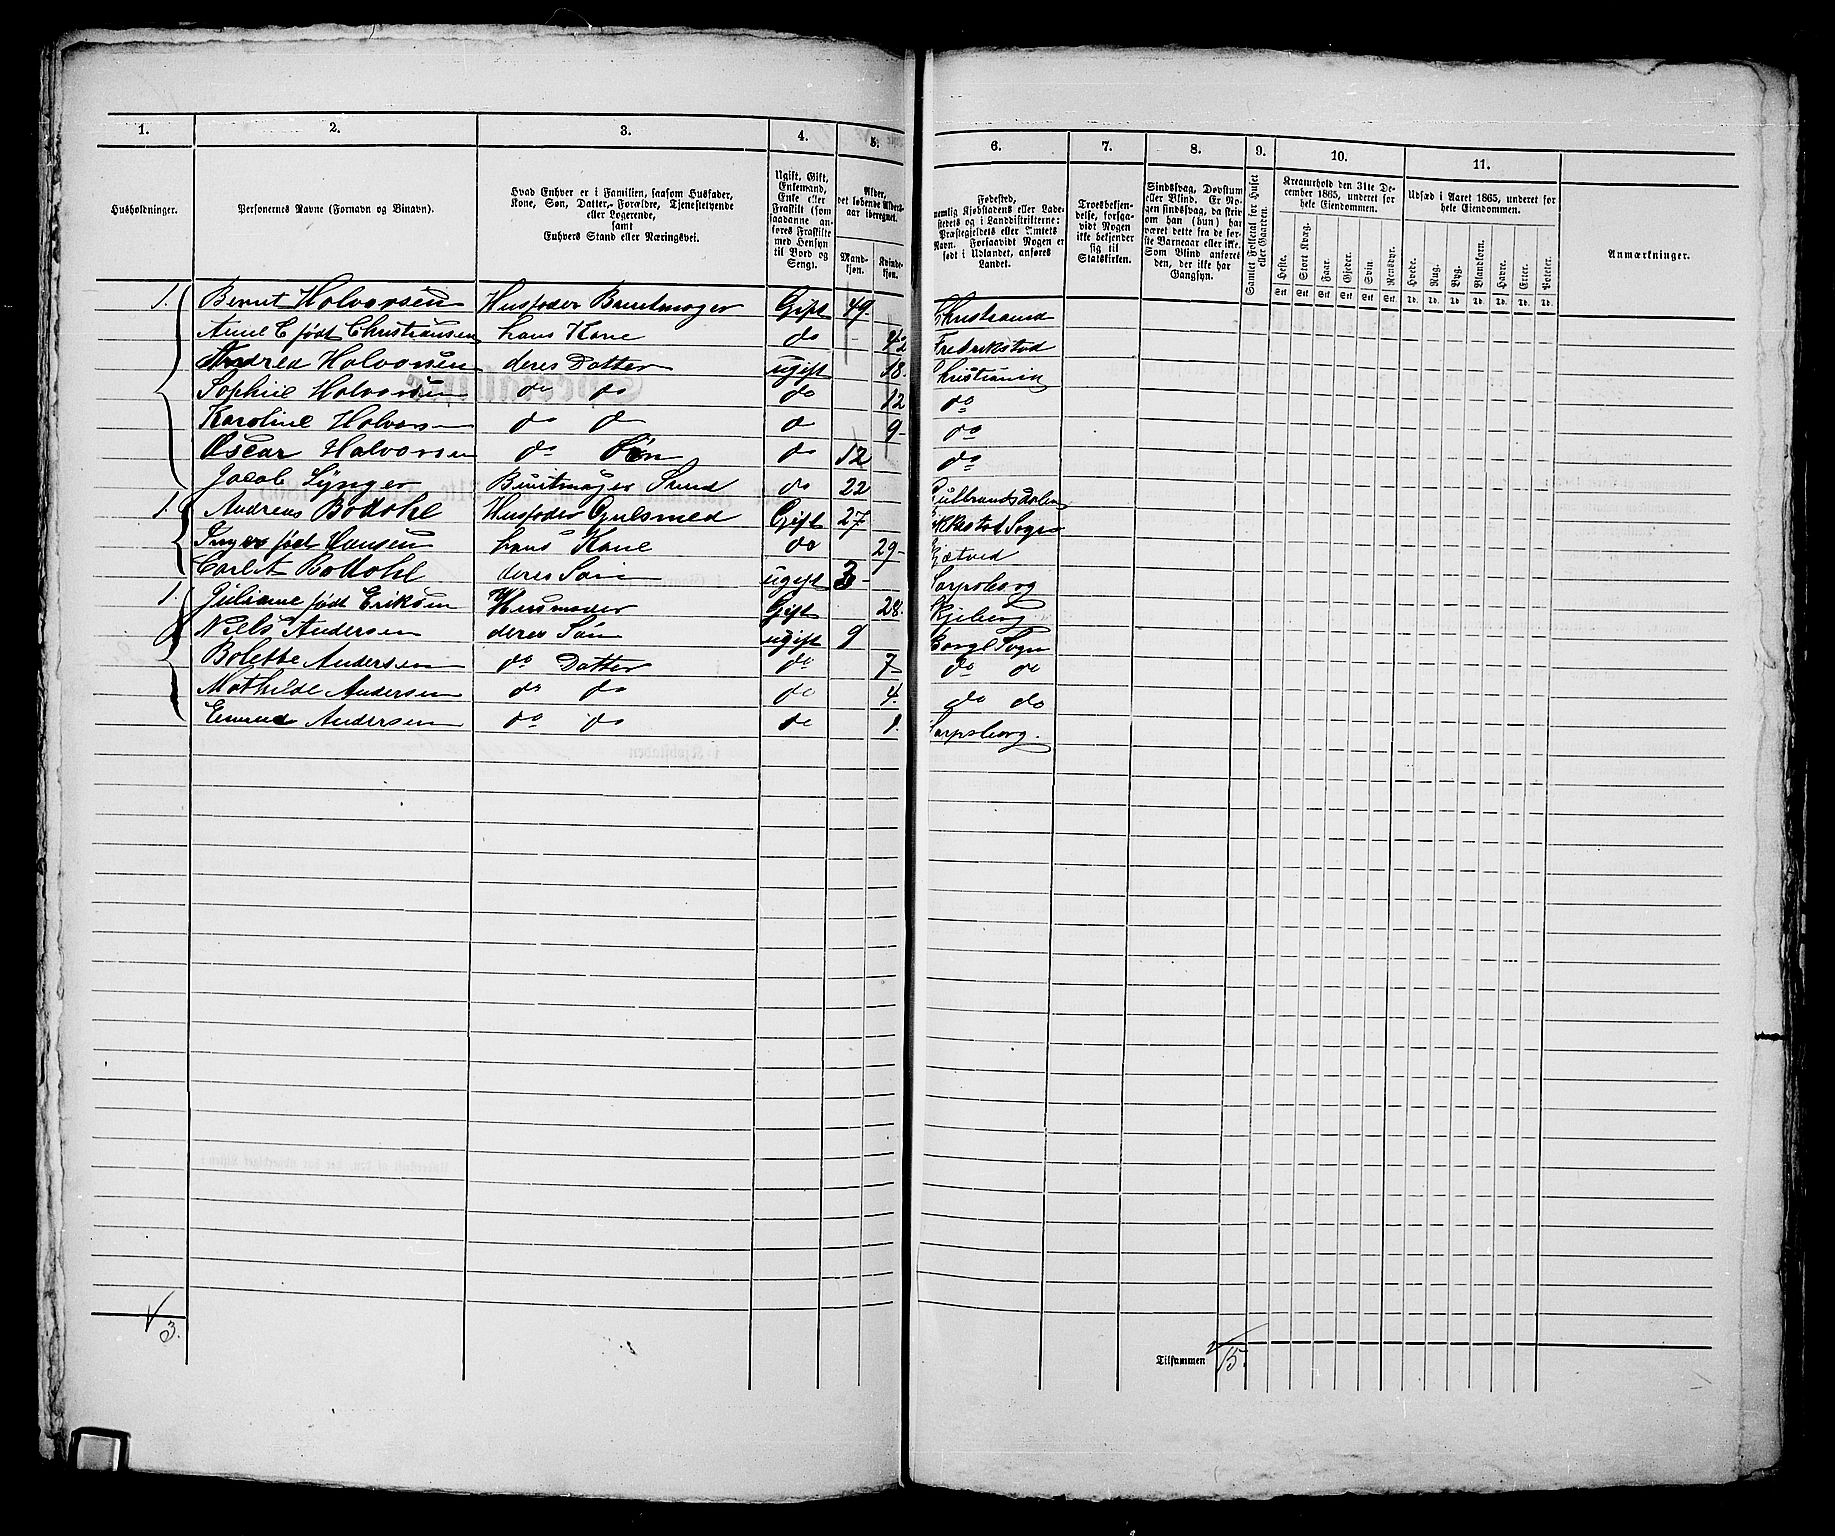 1. 2. 3. 4. 5. 6. 7. 8. 9. 10. 11.
Husholdninger.
Personernes Navne (Fornavn og Binavn).
Hvad Enhver er i Familien, saasom Husfader, Kone, Søn, Datter, Forældre, Tjenestetyende eller Logerende, samt Enhvers Stand eller Næringsvei.
Ugift, Gift, Enkemand, Enke eller Fraskilt (som saadanne anføres Fraskilte med Hensyn til Bord og Seng).
Alder, det løbende Alders-aar iberegnet.
Mandkjøn. Kvindekjøn.
Fødested, nemlig Kjøbstadens eller Ladestedets og i Landdistrikterne: Præstegjeldets eller Amtets Navn. Forsaavidt Nogen er født i Udlandet, anføres Landet.
Troesbekjendelse, forsaavidt Nogen ikke bekjender sig til Statskirken.
Sindssvag, Døvstum eller Blind. Er Nogen sindssvag, da skrives om han (hun) har været dette fra de første Barneaar eller ikke. Som Blind anføres den, der ikke har Gangsyn.
Samlet Folketal for Huset eller Gaarden.
Kreaturhold den 31te December 1865, underet for hele Eiendommen.
Heste. Stort Kvæg. Faar. Gjeder. Svin. Rensdyr.
Udsæd i Aaret 1865, underet for hele Eiendommen.
Hvede. Rug. Byg. Blandkorn. Havre. Erter. Poteter.
Anmærkninger.
1. Bernt Halvorsen Husfader Buntmager Gift 49 Christiansand
Anne C født Christiansen hans Kone do 42 Fredrikstad
Andrea Halvorsen deres Datter ugift 18 Christiania
Sophie Halvorsen do do do 12 do
Karoline Halvorsen do do do 9 do
Oscar Halvorsen do Søn do 12 do
Jacob Lynger Buntmager Svend do 22 Gulbrandsdalen
1. Andreas Bottohl Husfader Gulsmed Gift 27 Sogn
Inger født Hansen hans Kone do 29
Carl A Bottohl deres Søn ugift 3 Sarpsborg
1. Juliane født Eriksen Husmoder Gift 28. Skjeberg
Niels Andersen deres Søn ugift 9 Borge Sogn
Bolette Andersen do Datter do 7 do do
Mathilde Andersen do do do 4. do do
Andersen do do do 1. Sarpsborg.
3.
Tilsammen 15.